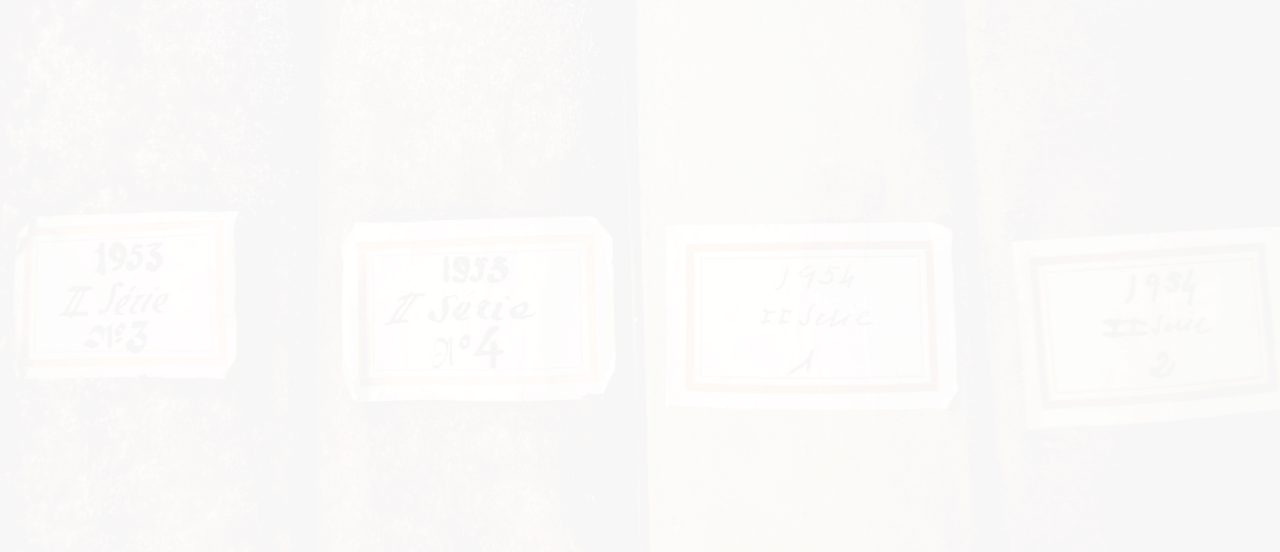 1953
II Série
Nº3
1953
II Serie
Nº4
1954
II Serie
1
1954
II Serie
2